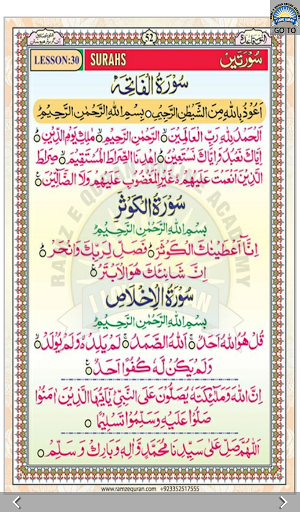 GO TO
52
LESSON:30 SURAHS سُورَتیں
سُوْرَةُ الْفَاتِحَة
اَعُوْذُ بِاللّٰهِ مِنَ الشَّيْطٰنِ الرَّجِيْمِ بِسْمِ اللّٰهِ الرَّحْمٰنِ الرَّحِيْمِ
اَلْحَمْدُ لِلّٰهِ رَبِّ الْعٰلَمِيْنَ الرَّحْمٰنِ الرَّحِيْمِ مٰلِكِ يَوْمِ الدِّيْنِ
اِيَّاكَ نَعْبُدُ وَاِيَّاكَ نَسْتَعِيْنُ اِهْدِنَا الصِّرَاطَ الْمُسْتَقِيْمَ صِرَاطَ
الَّذِيْنَ اَنْعَمْتَ عَلَيْهِمْ غَيْرِ الْمَغْضُوْبِ عَلَيْهِمْ وَلَا الضَّآلِّيْنَ
سُوْرَةُ الْكَوْثَر
بِسْمِ اللّٰهِ الرَّحْمٰنِ الرَّحِيْمِ
اِنَّآ اَعْطَيْنٰكَ الْكَوْثَرَ فَصَلِّ لِرَبِّكَ وَانْحَرْ
اِنَّ شَانِئَكَ هُوَ الْاَبْتَرُ
سُوْرَةُ الْاِخْلَاص
بِسْمِ اللّٰهِ الرَّحْمٰنِ الرَّحِيْمِ
قُلْ هُوَ اللّٰهُ اَحَدٌ اَللّٰهُ الصَّمَدُ لَمْ يَلِدْ وَلَمْ يُوْلَدْ
وَلَمْ يَكُنْ لَّهٗ كُفُوًا اَحَدٌ
اِنَّ اللّٰهَ وَمَلٰٓئِكَتَهٗ يُصَلُّوْنَ عَلَى النَّبِيِّ يٰٓاَيُّهَا الَّذِيْنَ اٰمَنُوْا
صَلُّوْا عَلَيْهِ وَسَلِّمُوْا تَسْلِيْمًا
اَللّٰهُمَّ صَلِّ عَلٰى سَيِّدِنَا مُحَمَّدٍ وَّاٰلِهٖ وَبَارِكْ وَسَلِّمْ
www.ramzequran.com +923352517555